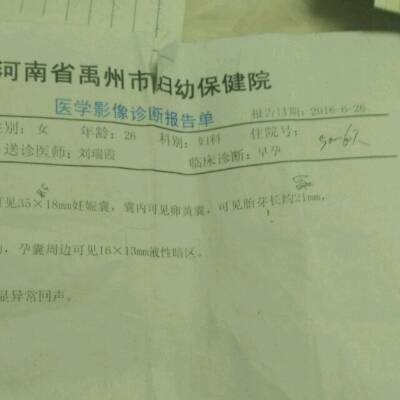 河南省禹州市妇幼保健院
医学影像诊断报告单
报告日期：2016-6-26
性别：女 年龄：26 科别：妇科 住院号：
送诊医师：刘瑞霞 临床诊断：早孕
可见35×18mm妊娠囊，囊内可见卵黄囊，可见胎芽长约21mm，
，孕囊周边可见16×13mm液性暗区。
显异常回声。